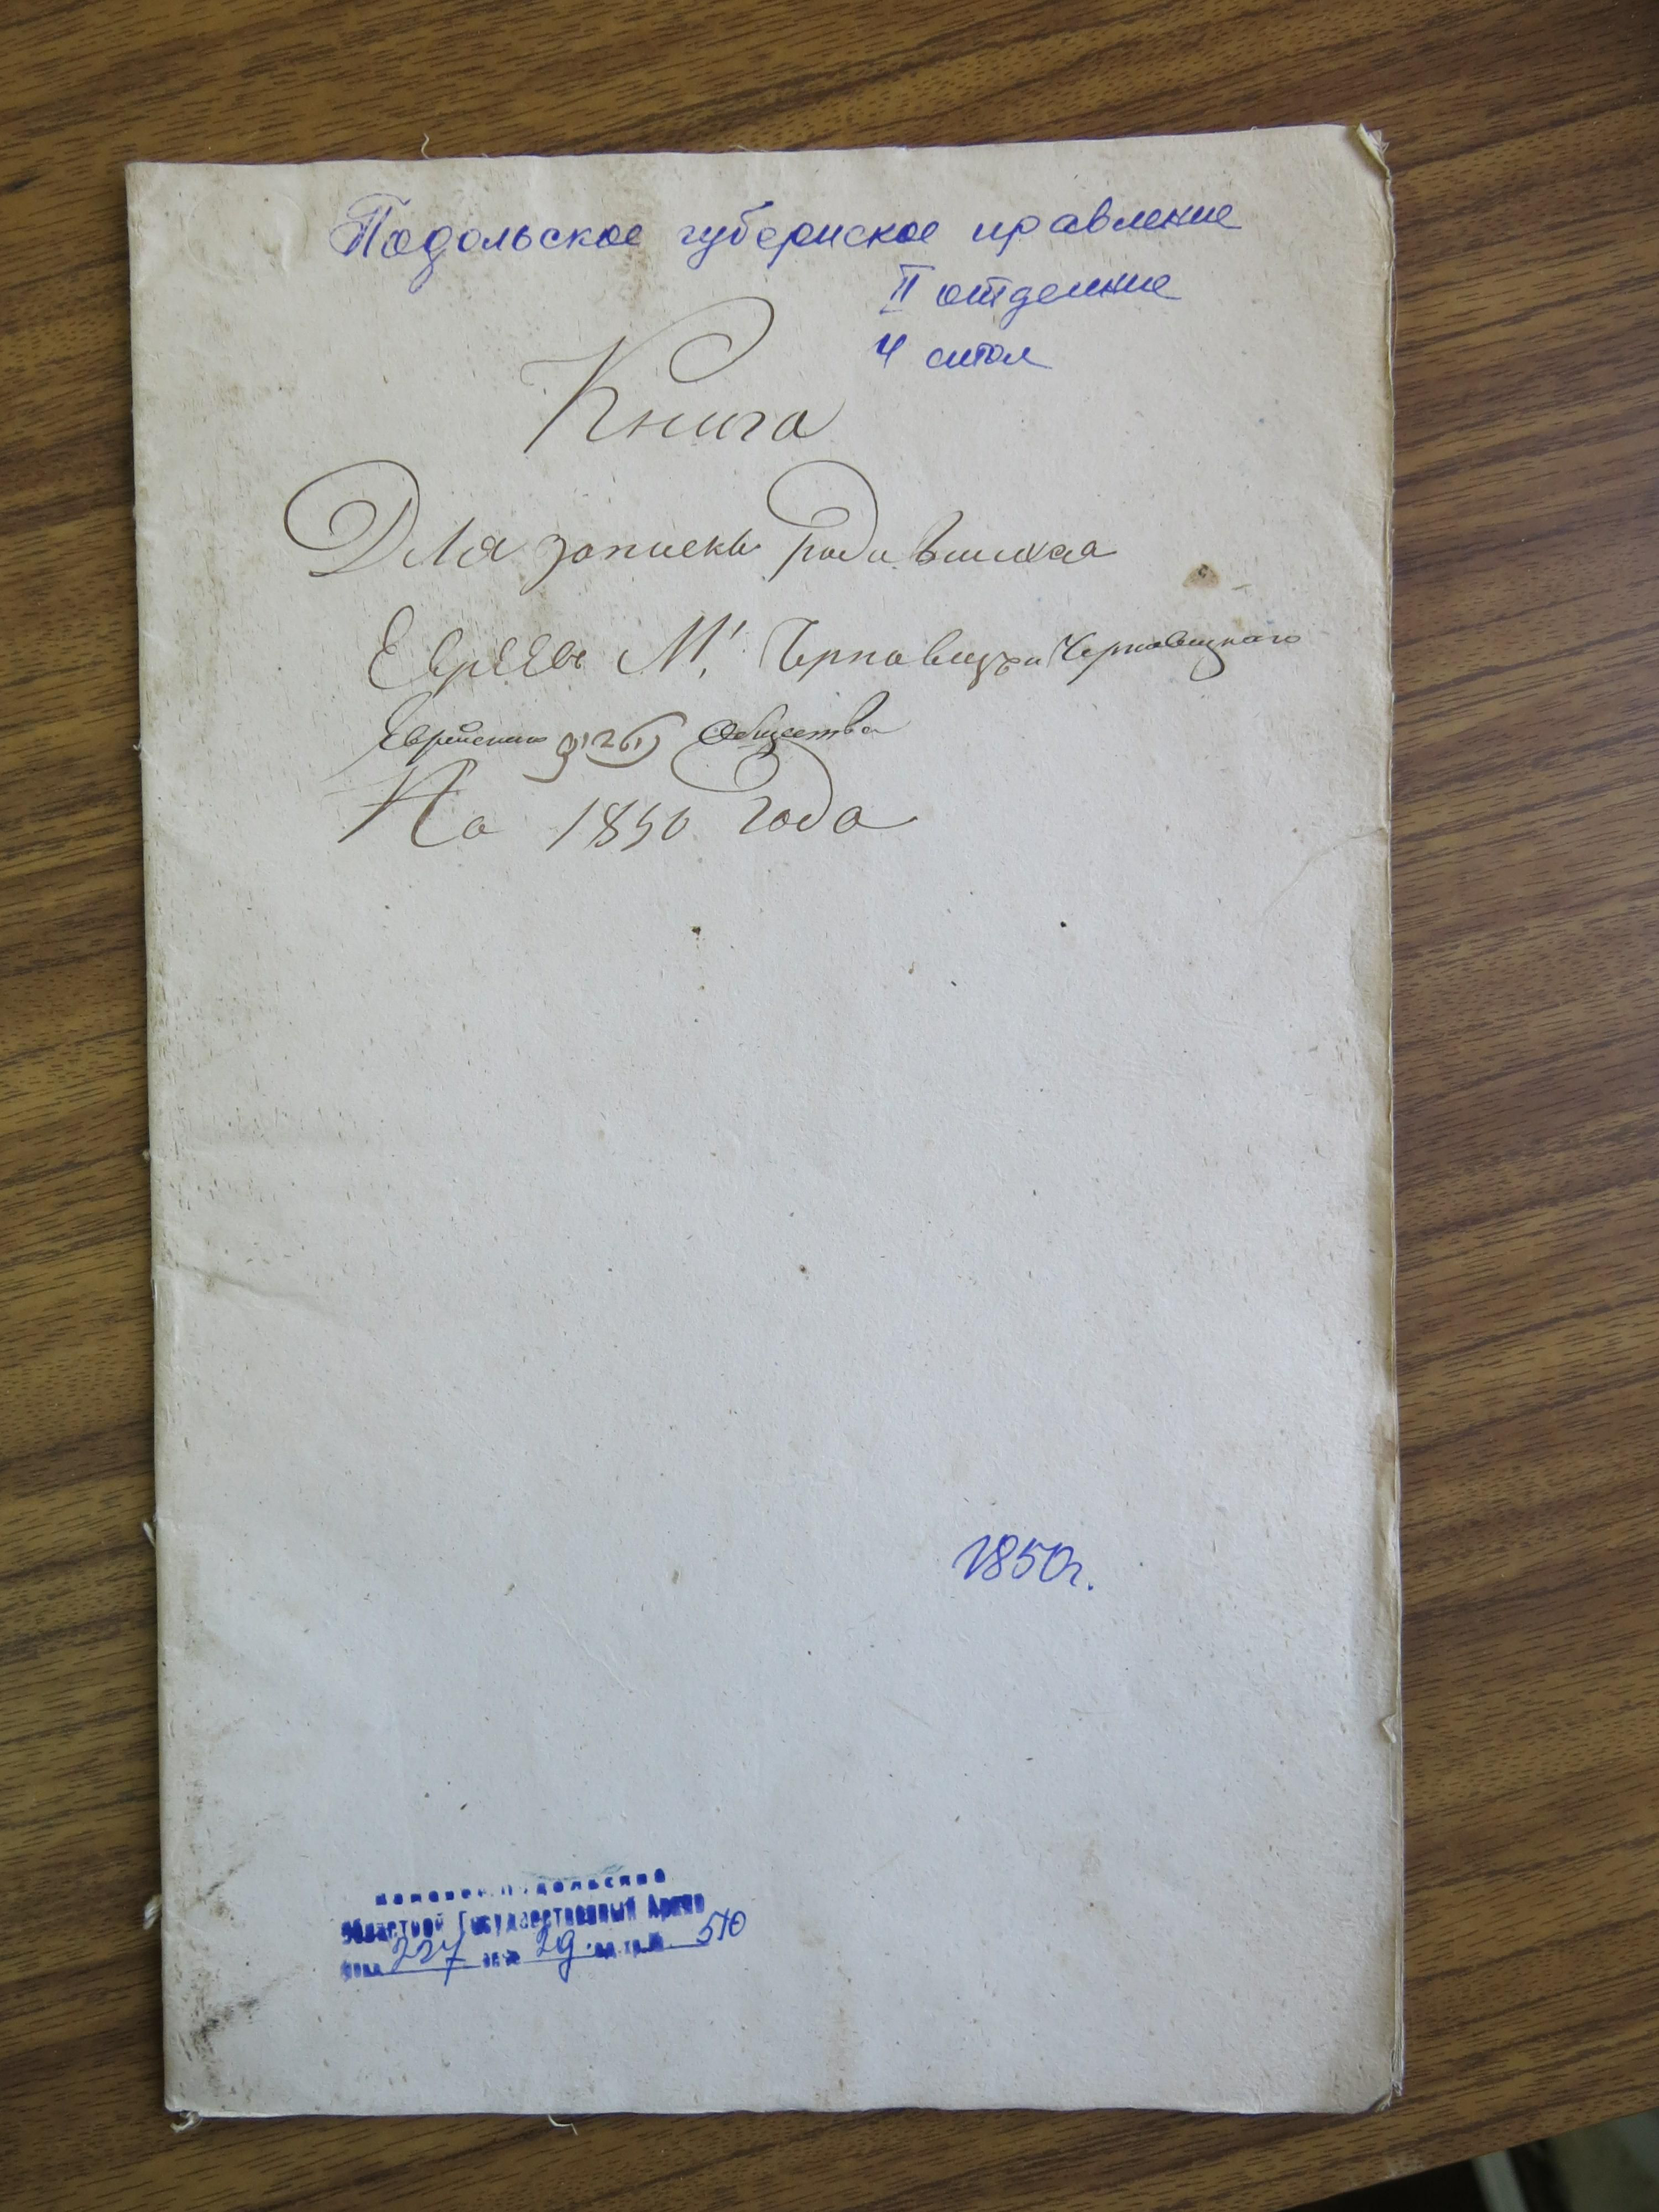 Подольское губернское правление
II отделение
4 стол
Книга
Для записки родившихся
Евреев М. Черновицы Черновецкого
Еврейского Общества
На 1850 Года
1850г.
Каменец-Подольский
Областной Государственный Архив
фонд 227 опись 29 ед. хр. № 510